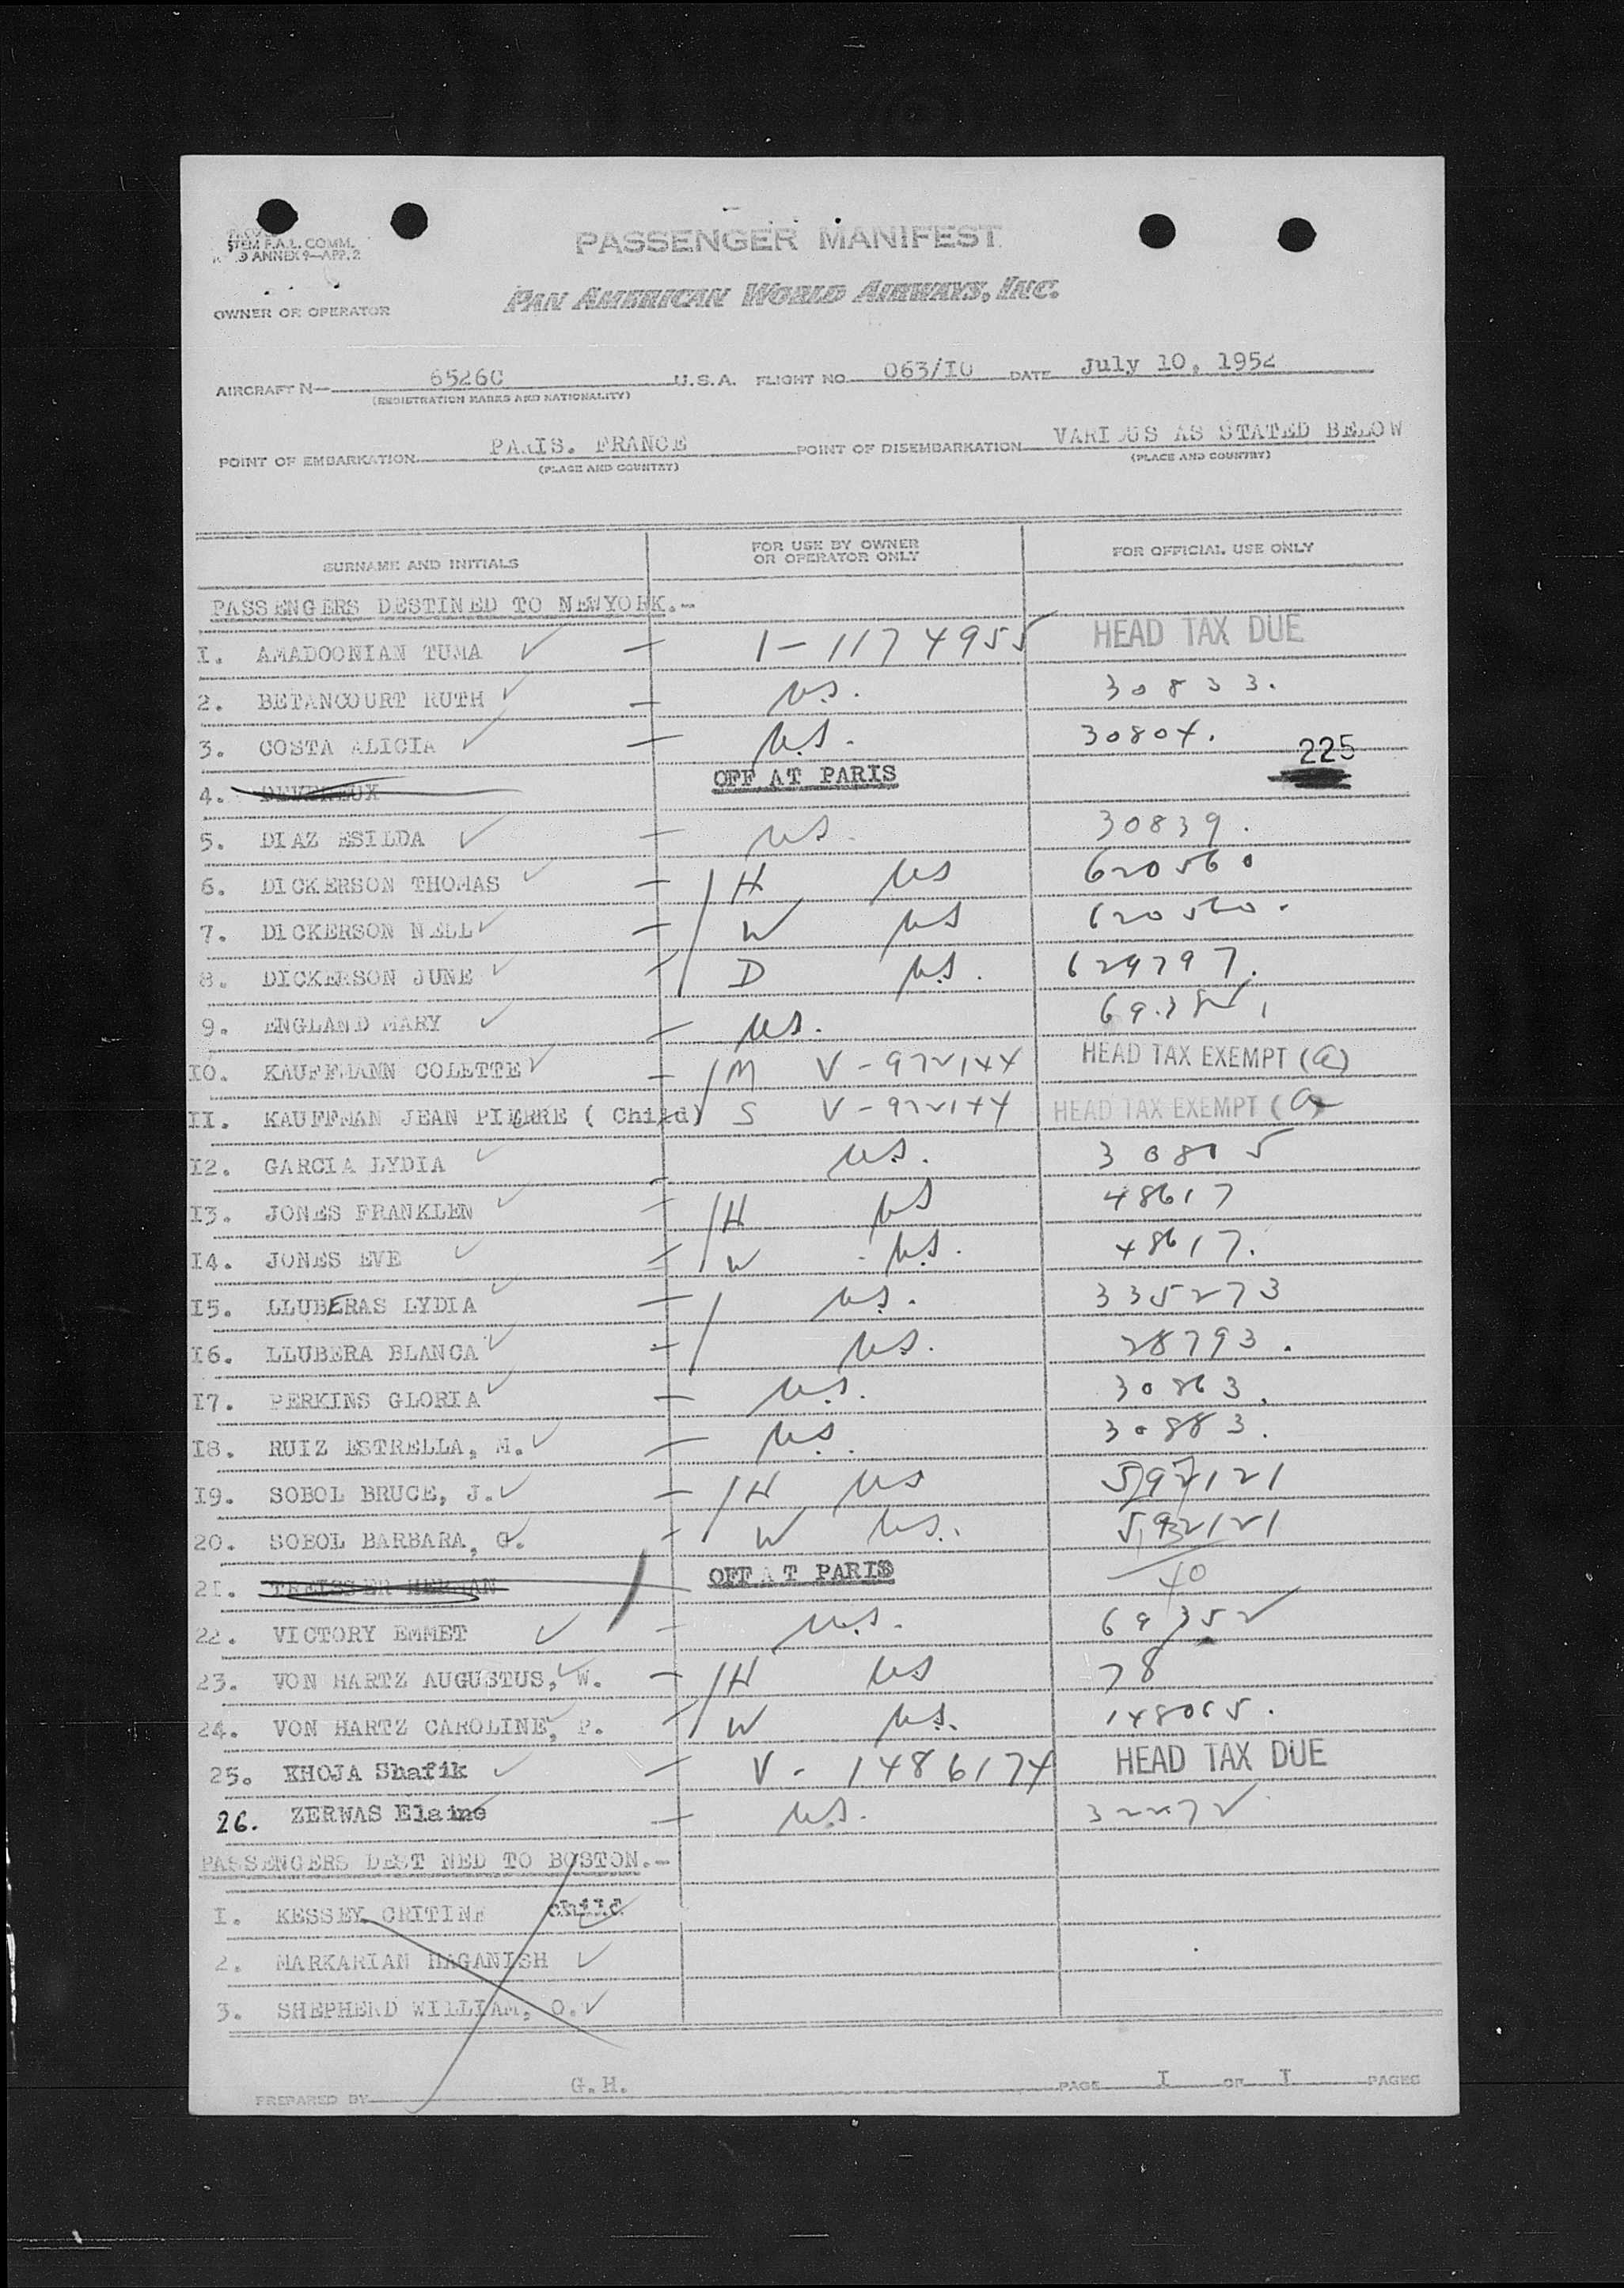 STEM F.A.L. COMM.
9 ANNEX 9—APP. 2
PASSENGER MANIFEST
PAN AMERICAN WORLD AIRWAYS, INC.
OWNER OR OPERATOR
AIRCRAFT N— 6526C U.S.A. FLIGHT NO. 063/IO DATE July 10, 1952
(REGISTRATION MARKS AND NATIONALITY)
POINT OF EMBARKATION PARIS. FRANCE POINT OF DISEMBARKATION VARIOUS AS STATED BELOW
(PLACE AND COUNTRY) (PLACE AND COUNTRY)
SURNAME AND INITIALS FOR USE BY OWNER OR OPERATOR ONLY FOR OFFICIAL USE ONLY
PASSENGERS DESTINED TO NEWYORK.-
I. AMADOONIAN TUMA ✓ — I-1174955 HEAD TAX DUE
2. BETANCOURT RUTH ✓ — U.S. 30833.
3. COSTA ALICIA ✓ — U.S. 30804.
225
4. DEVEREUX OFF AT PARIS
5. DIAZ ESILDA ✓ — US. 30839.
6. DICKERSON THOMAS ✓ — H US 620560
7. DICKERSON NELL ✓ — W US 620560.
8. DICKERSON JUNE ✓ — D U.S. 629797.
9. ENGLAND MARY ✓ — U.S.
IO. KAUFFMANN COLETTE ✓ — M V-972144 HEAD TAX EXEMPT (a)
II. KAUFFMAN JEAN PIERRE ( Child) S V-972144 HEAD TAX EXEMPT (a)
I2. GARCIA LYDIA ✓ U.S. 30805
I3. JONES FRANKLEN ✓ — H US 48617
I4. JONES EVE ✓ — W U.S. 48617.
I5. LLUBERAS LYDIA ✓ — U.S. 335273
I6. LLUBERA BLANCA ✓ — U.S. 28793.
I7. PERKINS GLORIA ✓ — U.S. 30863.
I8. RUIZ ESTRELLA, M. ✓ — U.S. 30883.
I9. SOBOL BRUCE, J. ✓ — H US 592121
20. SOBOL BARBARA, G. ✓ — W U.S. 592121
2I. TREISSER HERMAN OFF AT PARIS 40
22. VICTORY EMMET ✓ — U.S. 69352
23. VON HARTZ AUGUSTUS, W. ✓ — H US 78
24. VON HARTZ CAROLINE, P. — W U.S. 148065.
25. KHOJA Shafik ✓ — V-1486174 HEAD TAX DUE
26. ZERWAS Elaine — U.S. 32272
PASSENGERS DEST NED TO BOSTON.-
I. KESSEY CRITINE child ✓
2. MARKARIAN HAGANISH ✓
3. SHEPHERD WILLIAM, O. ✓
PREPARED BY G.H. PAGE I OF I PAGES